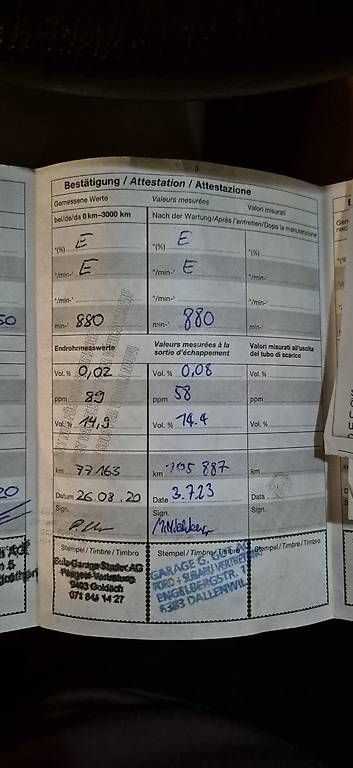 Bestätigung / Attestation / Attestazione
Gemessene Werte Valeurs mesurées Valori misurati
bei/de/da 0 km–3000 km Nach der Wartung/Après l'entretien/Dopo la manutenzione
°(%) E °(%) E °(%)
°/min-¹ E °/min-¹ E °/min-¹
°/min-¹ °/min-¹ °/min-¹
50 min-¹ 880 min-¹ 880 min-¹
Endrohrmesswerte Valeurs mesurées à la sortie d'échappement Valori misurati all'uscita del tubo di scarico
Vol. % 0,02 Vol. % 0,08 Vol. %
ppm 89 ppm 58 ppm
Vol. % 14,9 Vol. % 14.4 Vol. %
km 77163 km 105 887 km
Datum 26.08.20 Date 3.7.23 Data
Sign. Sign. Sign.
Stempel / Timbre / Timbro Stempel / Timbre / Timbro Stempel / Timbre / Timbro
Garage Studer AG
Peugeot-Vertretung
9403 Goldach
071 845 14 27
GARAGE G.
FORD + SUBARU VERTRETUNG
ENGELBERGSTR. 1
6383 DALLENWIL